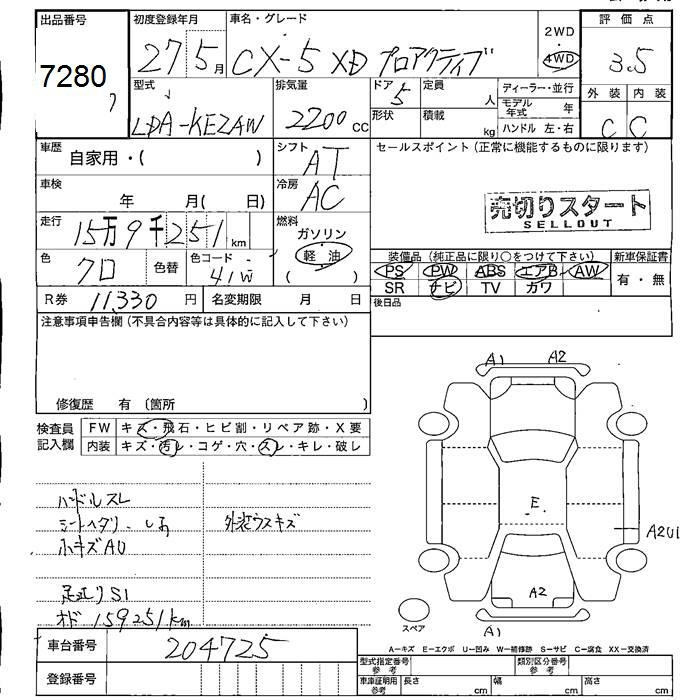 出品番号 初度登録年月 車名・グレード 2WD 評価点
7280 27 5月 CX-5 XD プロアクティブ 4WD 3.5
型式 排気量 ドア 定員 ディーラー・並行 外装 内装
LDA-KE2AW 2200cc 5 人 モデル年式 年 C C
形状 積載 kg ハンドル 左・右
車歴 自家用・( ) シフト AT セールスポイント(正常に機能するものに限ります)
車検 年 月( 日) 冷房 AC
売切りスタート
SELLOUT
走行 15万9千251km 燃料 ガソリン
軽・油
( )
装備品(純正品に限り○をつけて下さい) 新車保証書
色 クロ 色替 色コード 41W PS PW ABS エアB AW 有・無
SR ナビ TV カワ
R券 11,330円 名変期限 月 日 後日品
注意事項申告欄(不具合内容等は具体的に記入して下さい)
修復歴 有 〔箇所 〕
A1 A2
検査員記入欄 FW キズ・飛石・ヒビ割・リペア跡・X要
内装 キズ・汚レ・コゲ・穴・スレ・キレ・破レ
ハンドルスレ
シートヘタリ・シミ 外装ウスキズ
小キズAU
足廻りS1
オド 159251km
E
A2U1
A2
スペア
A1
車台番号 204725
A−キズ E−エクボ U−凹み W−補修跡 S−サビ C−腐食 XX−交換済
登録番号
型式指定番号 参考 類別区分番号 参考
車庫証明用 参考 長さ cm 幅 cm 高さ cm